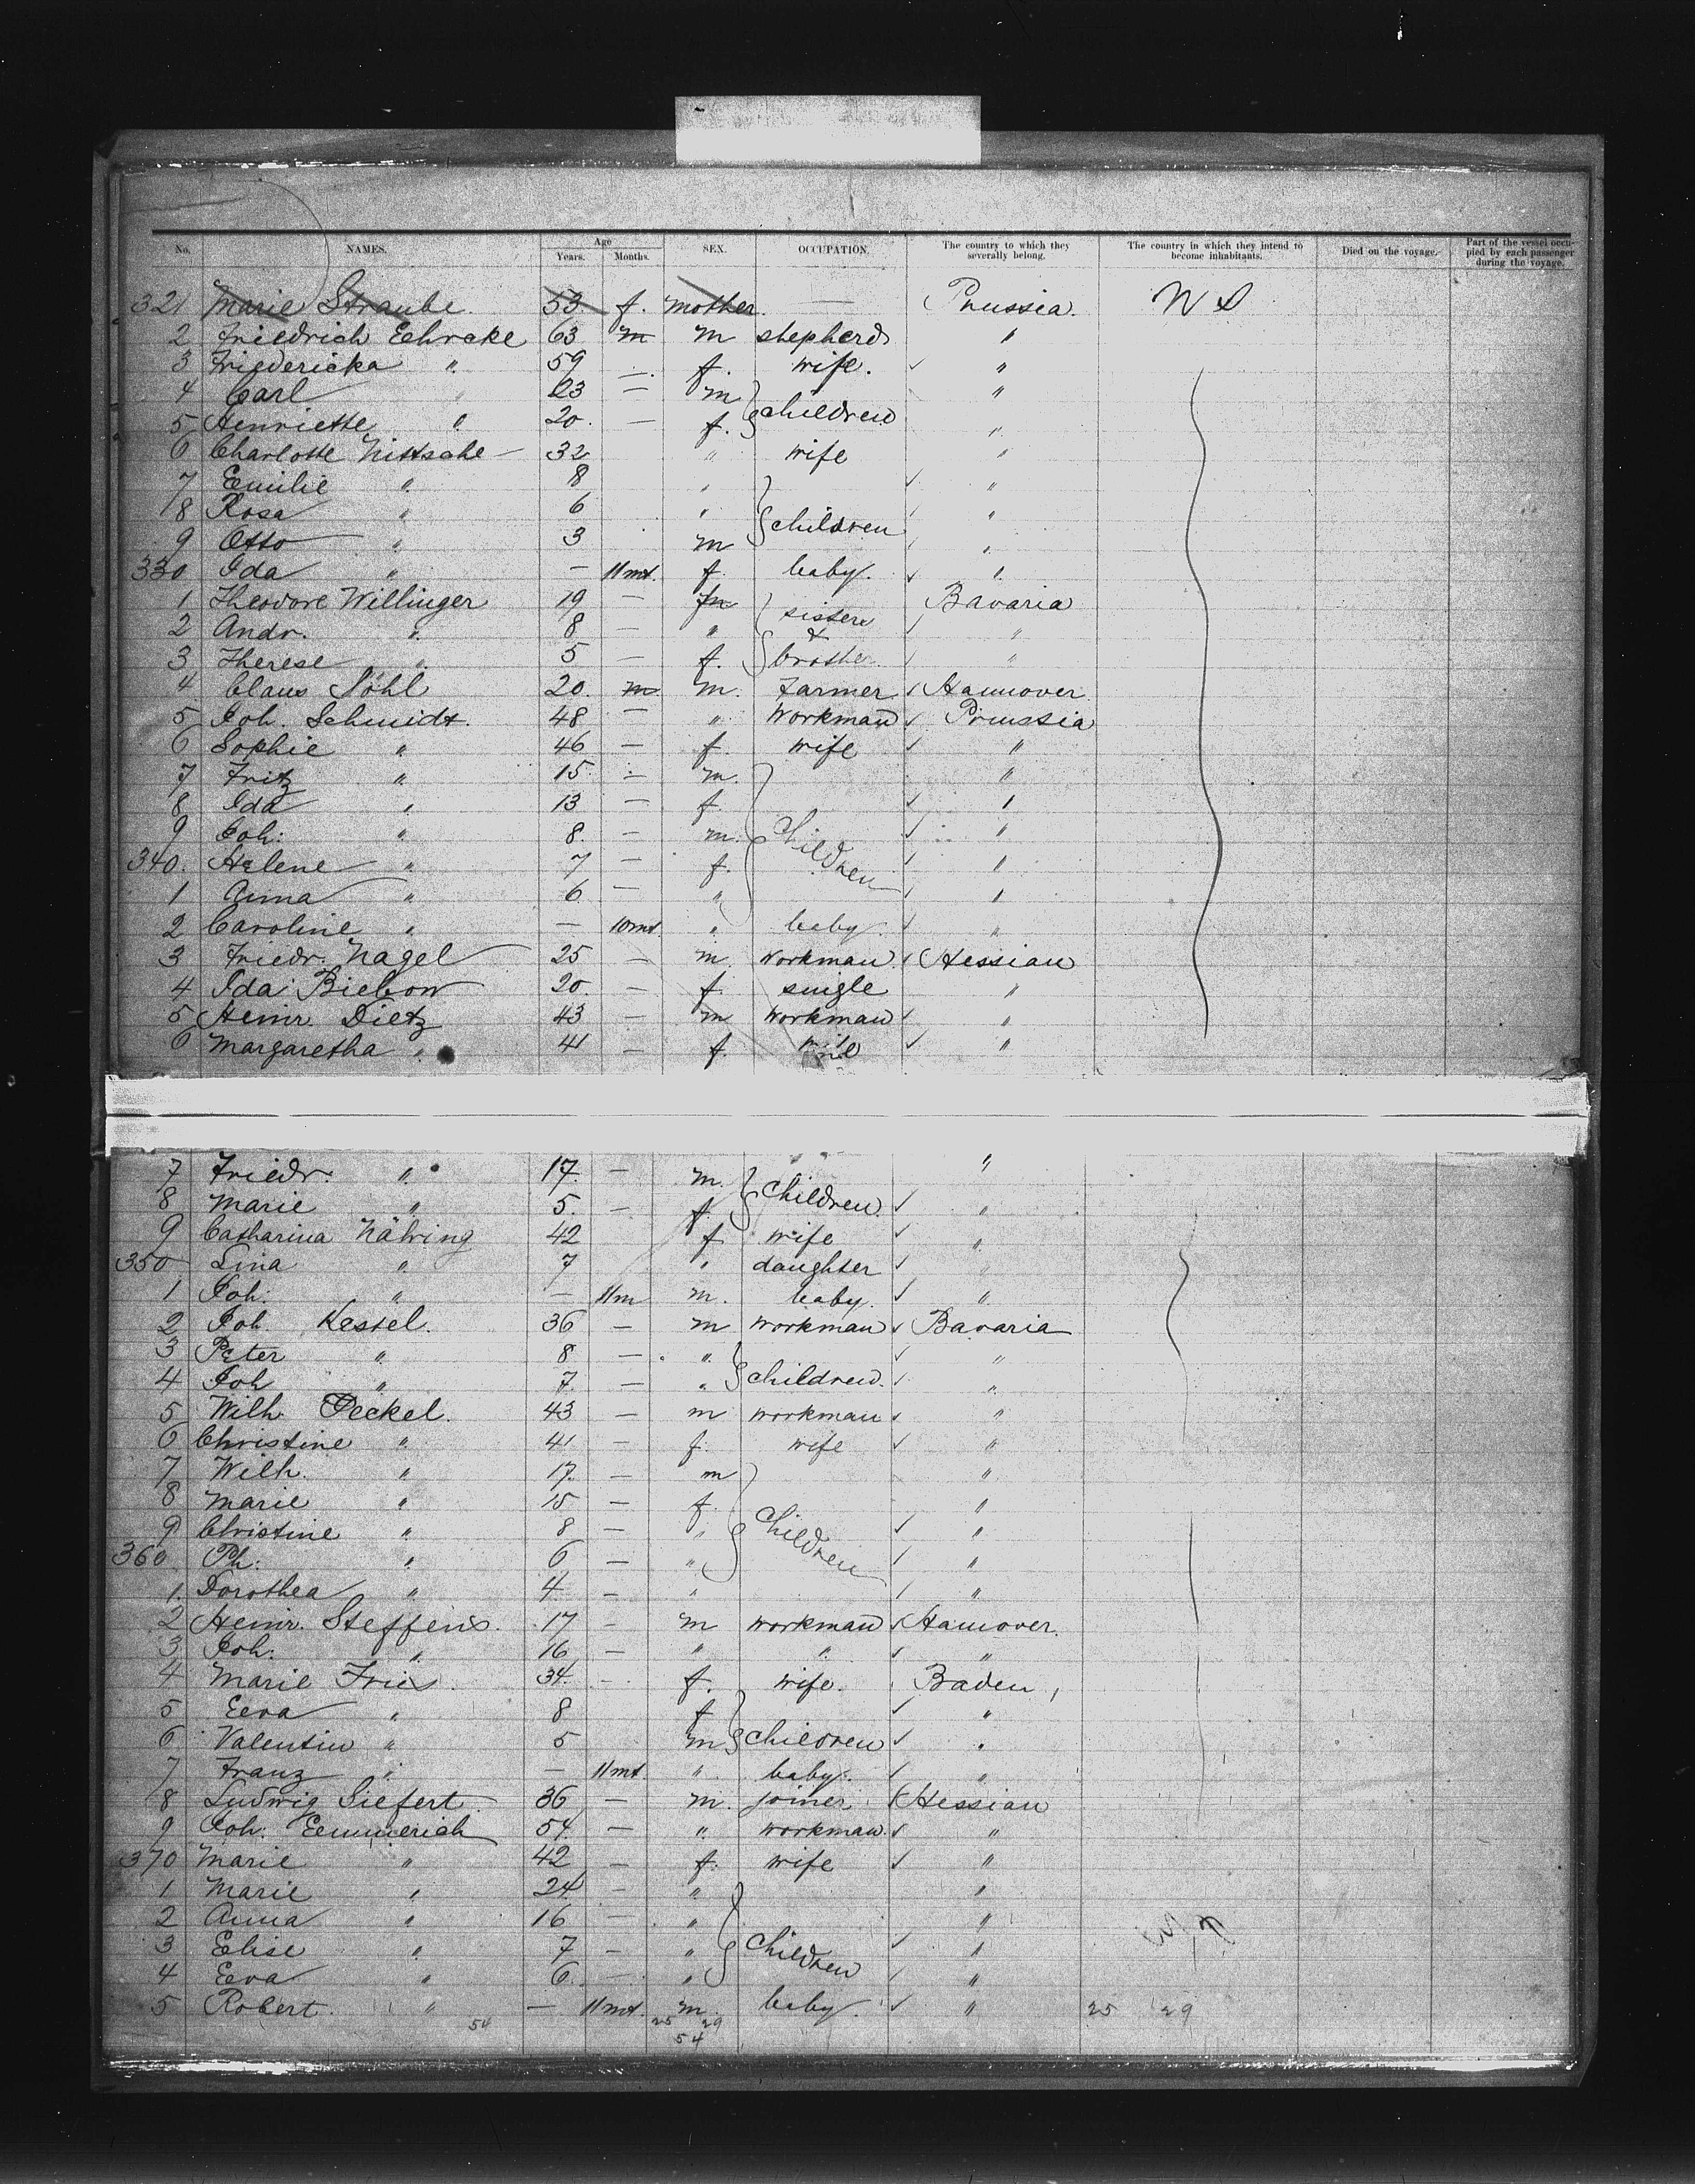 No. NAMES. Age Years. Months. SEX. OCCUPATION. The country to which they severally belong. The country in which they intend to become inhabitants. Died on the voyage. Part of the vessel occupied by each passenger during the voyage.
321 Marie Straube. 53 f. mother. — Prussia.
2 Friedrich Echrake 63 m m shepherd "
3 Friedericka " 59 — f. wife. ✓ "
4 Carl " 23 — m children "
5 Henriette " 20. — f. "
6 Charlotte Nittsche 32 " wife "
7 Emilie " 8 " children ✓ "
8 Rosa " 6 " "
9 Otto " 3 m "
330 Ida " — 11 mt. f. baby. ✓ "
1 Theodore Willinger 19 — sisters & brother Bavaria
2 Andr. " 8 — " ✓ "
3 Therese " 5 — f. ✓ "
4 Claus Söhl 20. m m. Farmer ✓ Hannover
5 Joh. Schmidt. 48 — " Workman ✓ Prussia
6 Sophie " 46 — f. wife ✓ "
7 Fritz " 15. — m. Children "
8 Ida " 13 — f. ✓ "
9 Joh. " 8. — m. ✓ "
340. Helene " 7 — f. ✓ "
1 Anna " 6 — " ✓ "
2 Caroline " — 10 mt. " baby ✓ "
3 Friedr. Nagel 25 — m. Workman ✓ Hessian
4 Ida Biebow 20. — f. single "
5 Heinr. Dietz 43 — m Workman ✓ "
6 Margaretha " 41 — f. wife ✓ "
7 Friedr. " 17. — m. Children. "
8 Marie " 5. — f. ✓ "
9 Catharina Nähring 42 f wife ✓ "
350 Lina " 7 " daughter ✓ "
1 Joh. " — 11 m m. baby. ✓ "
2 Joh. Kessel. 36 — m workman ✓ Bavaria
3 Peter " 8 — " children. ✓ "
4 Joh " 7. — " ✓ "
5 Wilh. Peckel. 43 — m workman ✓ "
6 Christine " 41 — f. wife ✓ "
7 Wilh. " 17. — m Children "
8 Marie " 15 — f. "
9 Christine " 8 — " ✓ "
360 Ph. " 6 — " ✓ "
1. Dorothea " 4 — " ✓ "
2 Heinr. Steffens. 17 — m workman ✓ Hannover.
3 Joh. " 16 — " " ✓ "
4 Marie Fries. 34. — f. wife. Baden
5 Eeva " 8 f children ✓ "
6 Valentin " 5 m ✓ "
7 Franz " — 11 mt. " baby. ✓ "
8 Ludwig Siefert. 36 — m. joiner Hessian
9 Joh. Eemmerich 54. — " workman. ✓ "
370 Marie " 42 — f. wife ✓ "
1 Marie " 24 — " Children "
2 Anna " 16 — " "
3 Eelise " 7 — " ✓ "
4 Eeva " 6. — " ✓ "
5 Robert. " — 11 mt. m. baby ✓ " 25 29
54 25 29
54